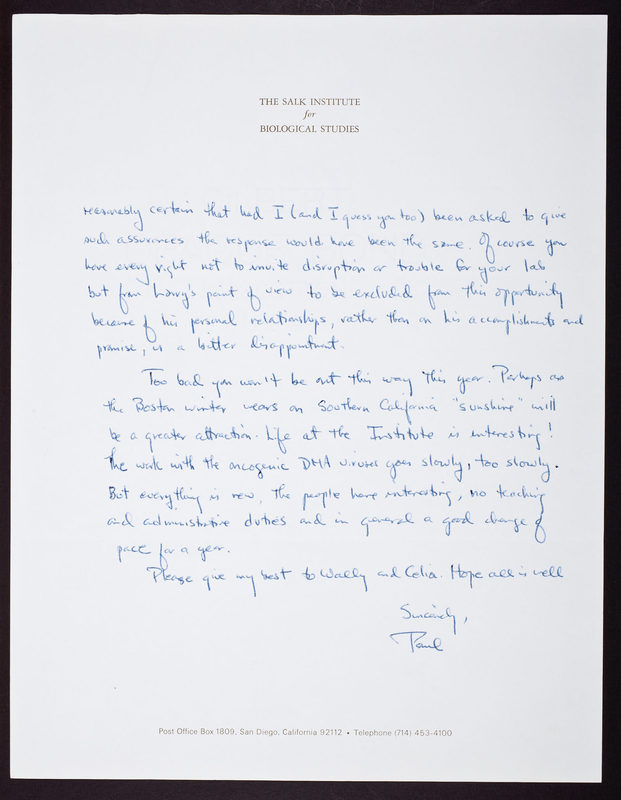 THE SALK INSTITUTE
for
BIOLOGICAL STUDIES
reasonably certain that had I (and I guess you too) been asked to give
such assurances the response would have been the same. Of course you
have every right not to invite disruption or trouble for your lab
but from Larry's point of view to be excluded from this opportunity
because of his personal relationships, rather than on his accomplishments and
promise, is a bitter disappointment.
Too bad you won't be out this way this year. Perhaps as
the Boston winter wears on Southern California "sunshine" will
be a greater attraction. Life at the Institute is interesting!
The work with the oncogenic DNA viruses goes slowly, too slowly.
But everything is new, the people here interesting, no teaching
and administrative duties and in general a good change of
pace for a year.
Please give my best to Wally and Celia. Hope all is well
Sincerely,
Paul
Post Office Box 1809, San Diego, California 92112 • Telephone (714) 453-4100